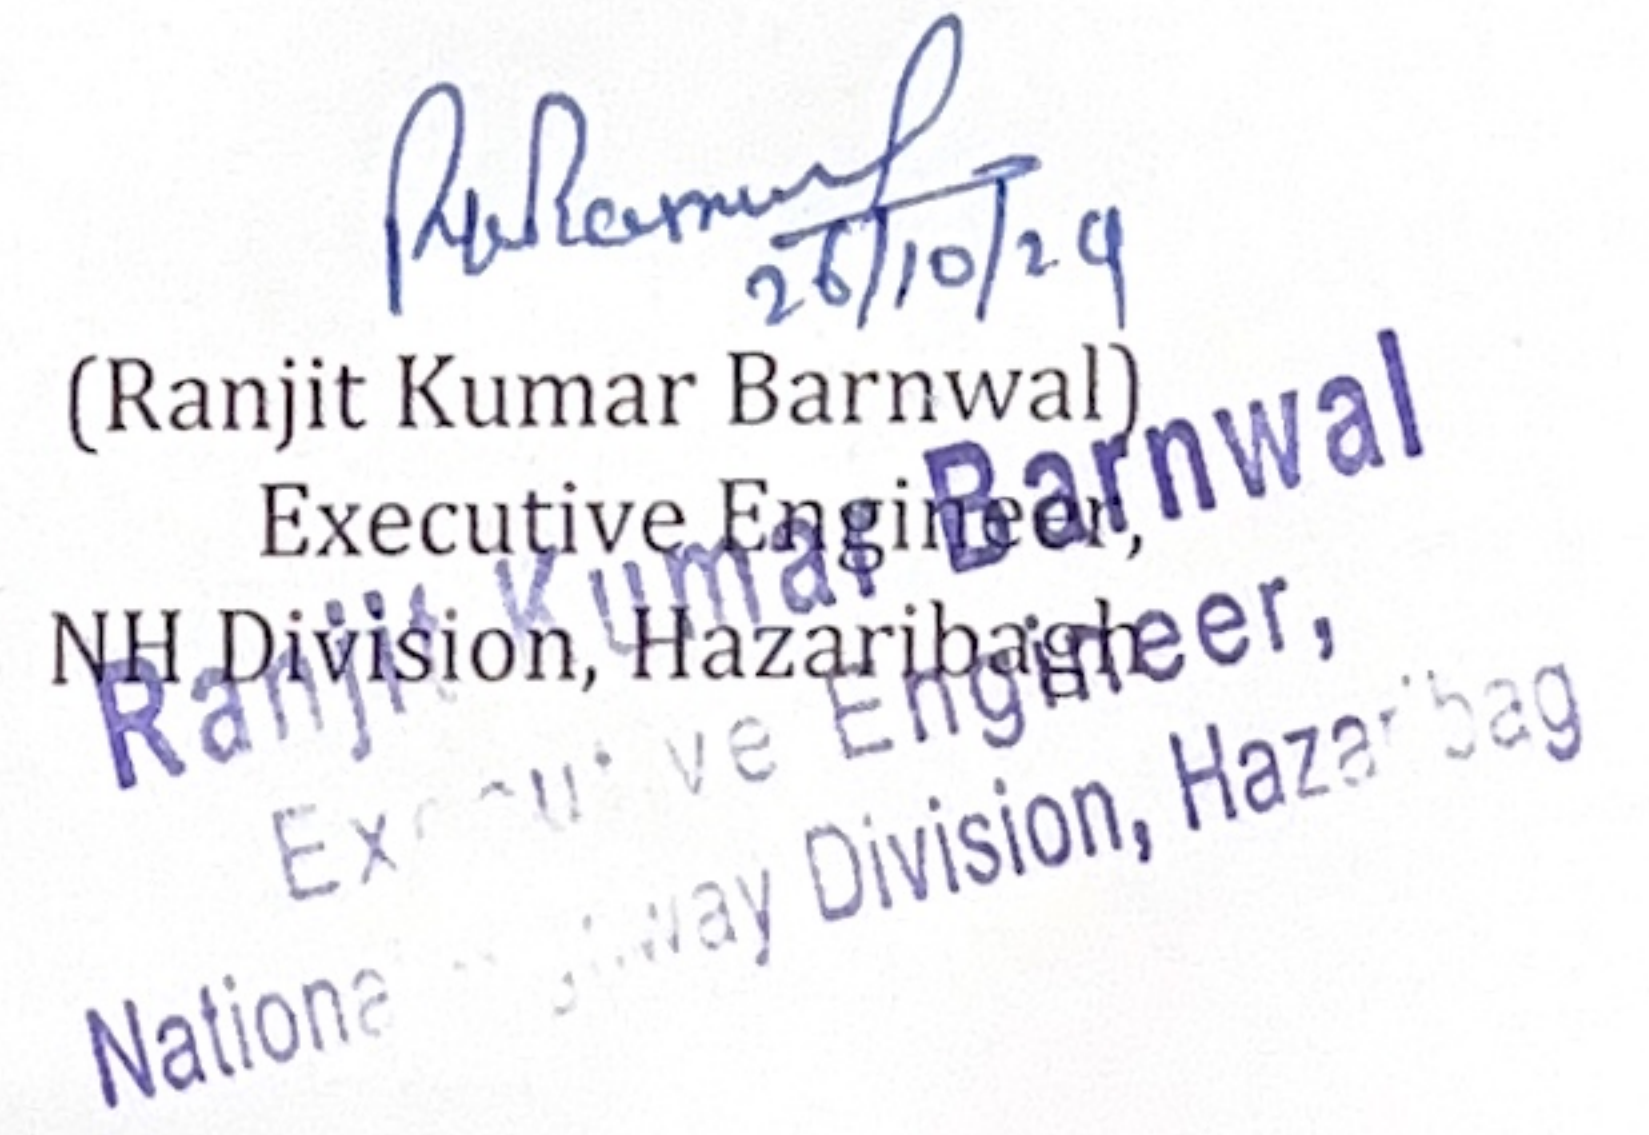 26/10/24
(Ranjit Kumar Barnwal)
Executive Engineer,
NH Division, Hazaribagh
Ranjit Kumar Barnwal
Executive Engineer,
National Highway Division, Hazaribag